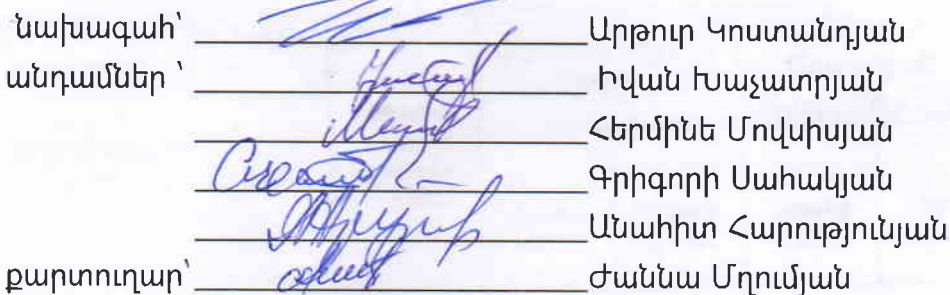 նախագահ՝ Արթուր Կոստանդյան
անդամներ ՝ Իվան Խաչատրյան
Հերմինե Մովսիսյան
Գրիգորի Սահակյան
Անահիտ Հարությունյան
քարտուղար՝ Ժաննա Մղումյան